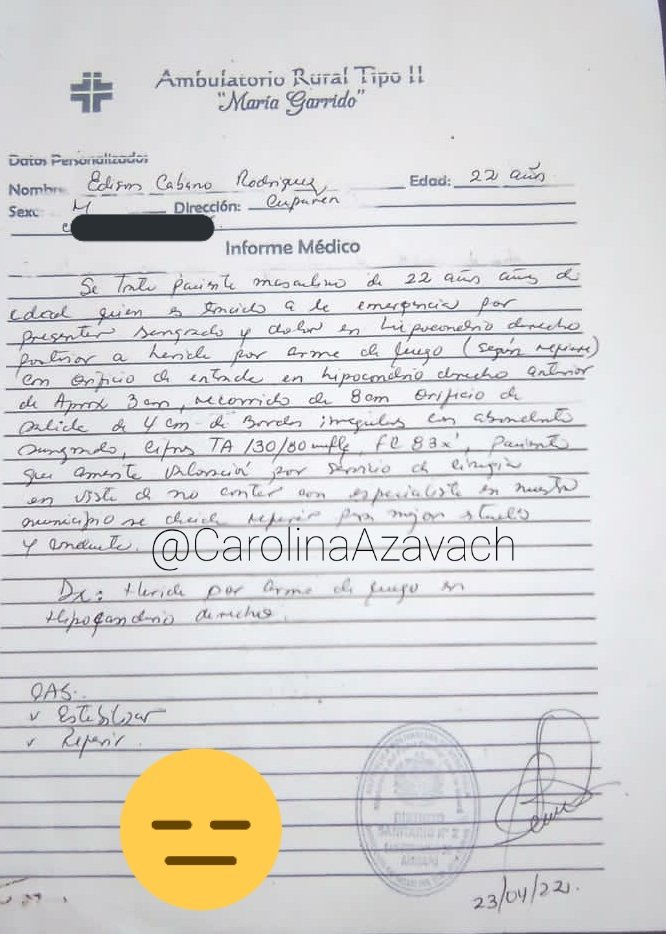 Ambulatorio Rural Tipo II
"María Garrido"
Datos Personalizados
Nombre: Edison Cabano Rodriguez Edad: 22 años
Sexo: M Dirección: Cupuren
Informe Médico
Se trata paciente masculino de 22 años años de
edad quien es traido a la emergencia por
presentar sangrado y dolor en hipocondrio derecho
posterior a herida por arma de fuego (según refiere)
con orificio de entrada en hipocondrio derecho anterior
de Aprox 3 cm, recorrido de 8 cm orificio de
salida de 4 cm de Bordes irregulares con abundante
sangrado, cifras TA 130/80 mmHg, FC 83x', paciente
que amerita valoración por servicio de cirugía
en vista de no contar con especialista en nuestro
municipio se decide referir para mejor studio
y conducta.
@CarolinaAzavach
Dx: Herida por arma de fuego en
Hipocondrio derecho.
OAS:
Estabilizar
Referir.
DISTRITO
SANITARIO Nº 2
23/04/22